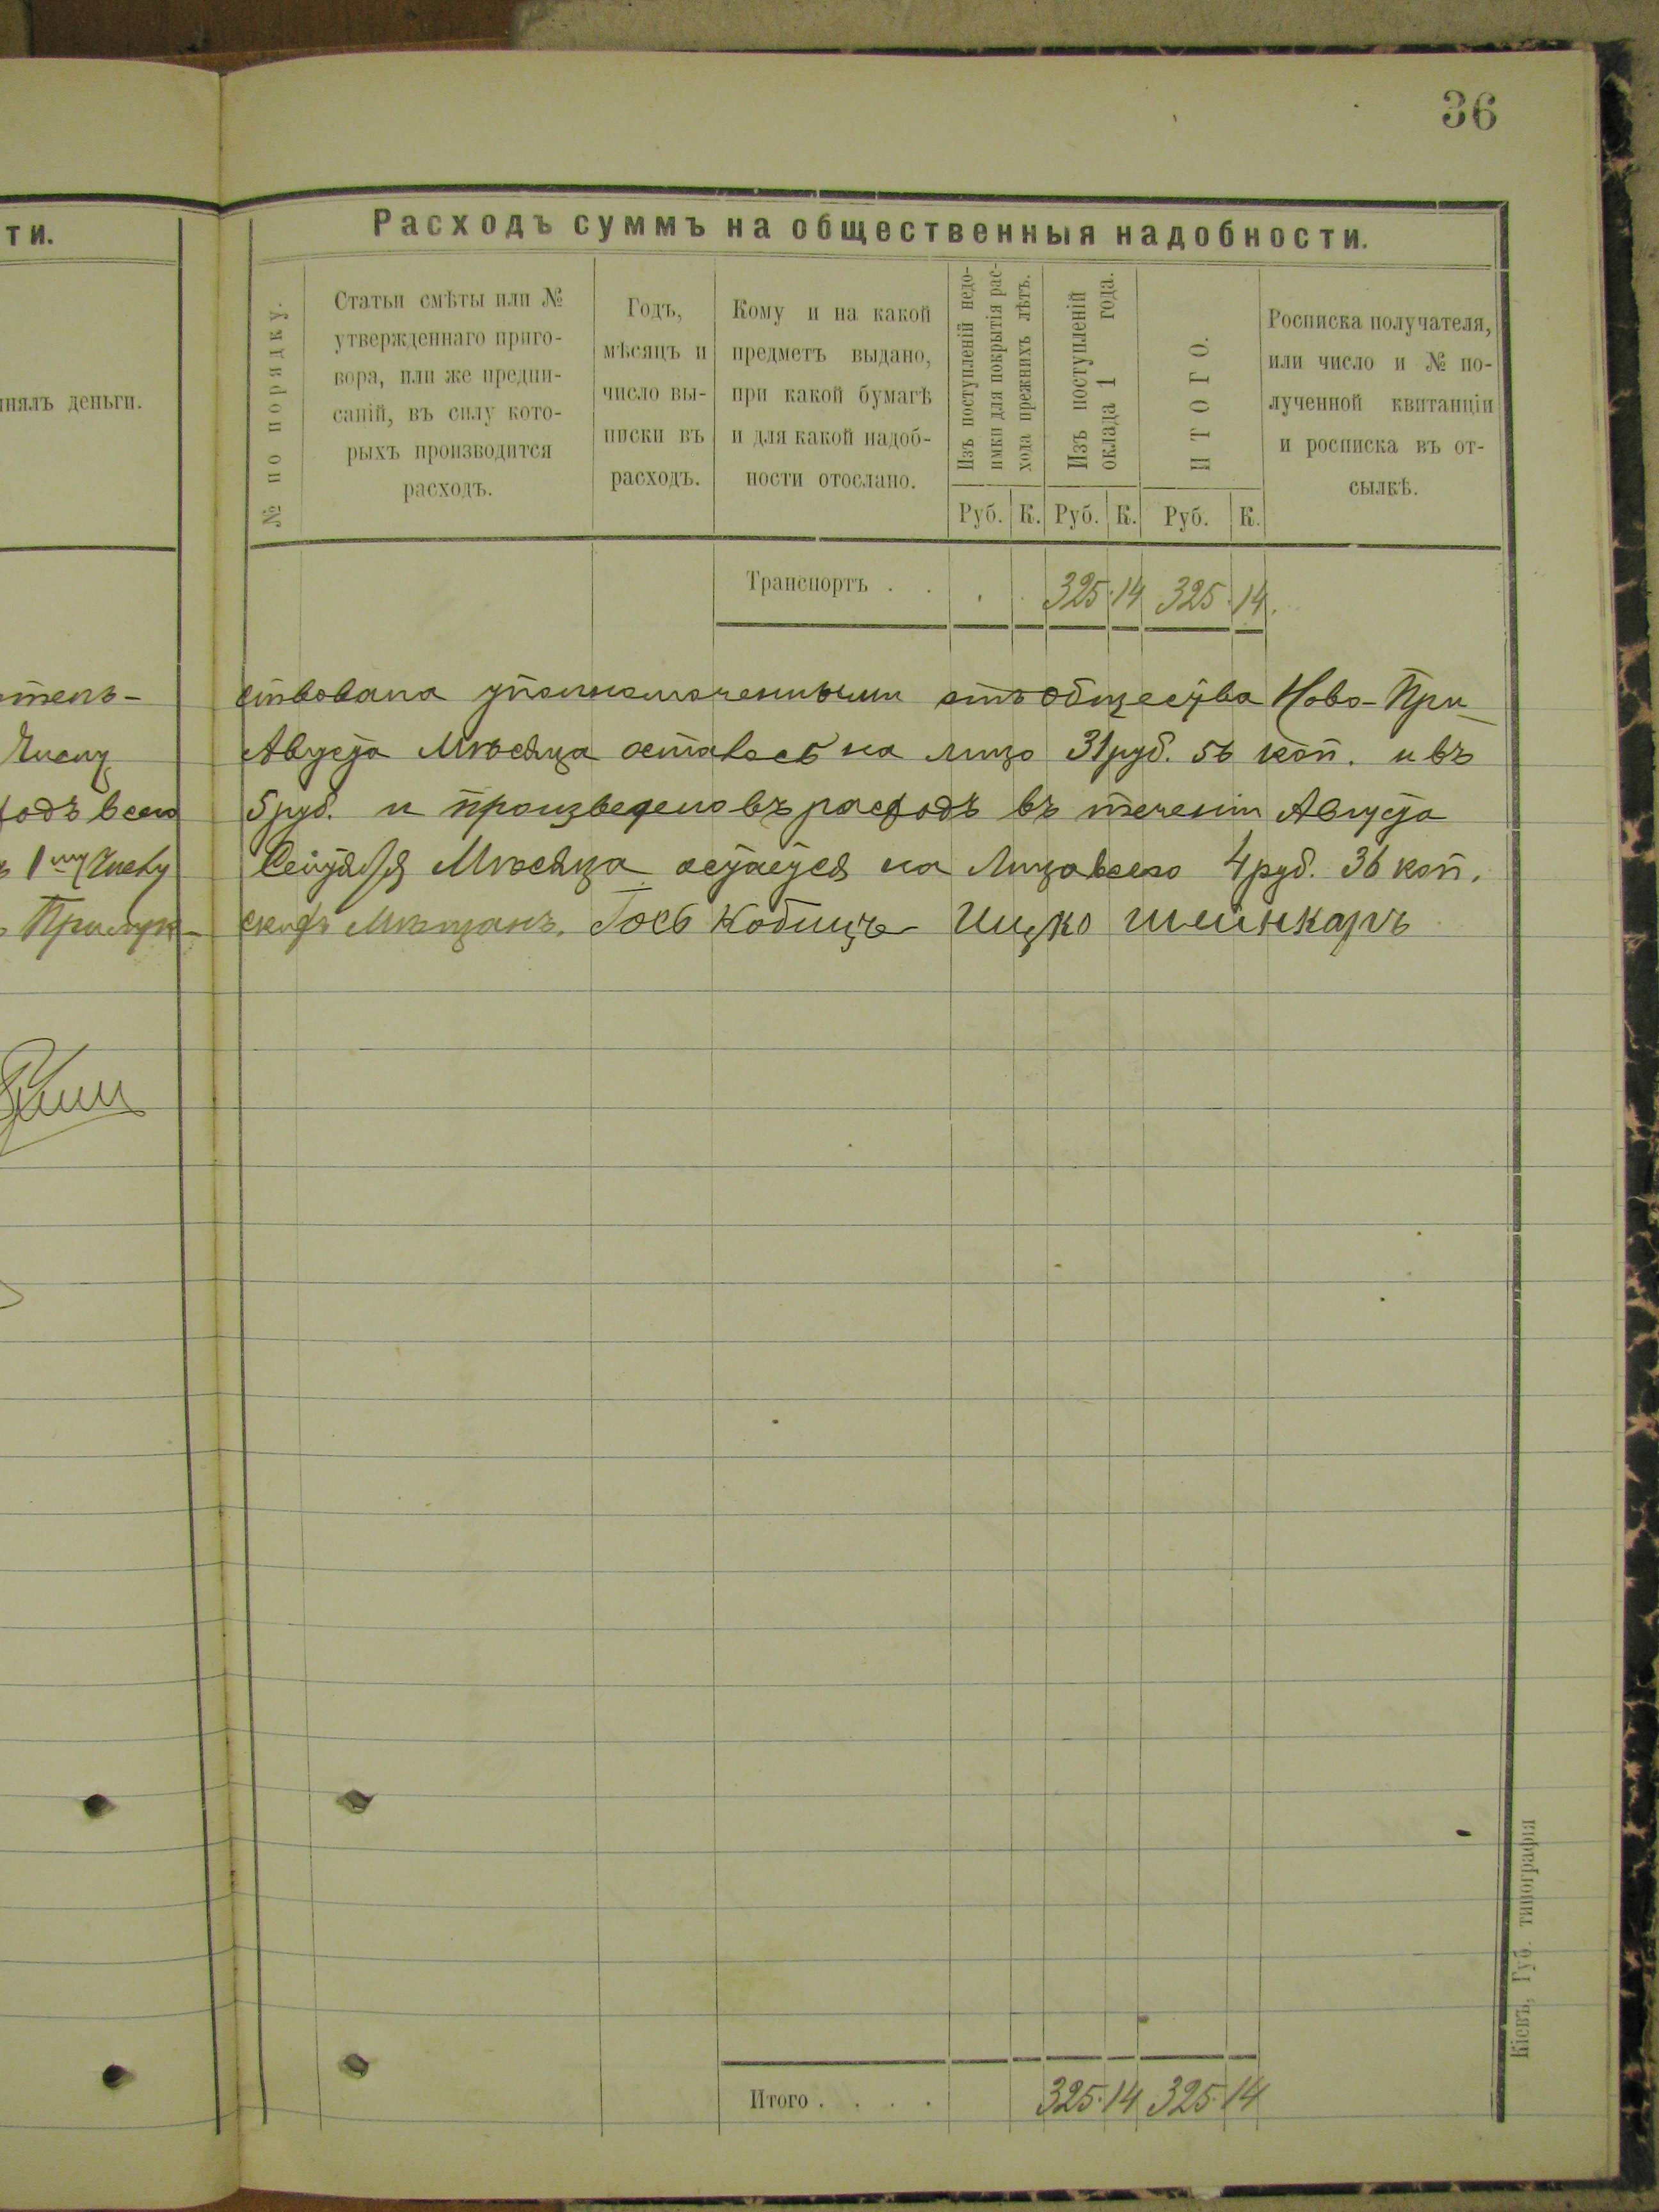 36
ти.
инялъ деньги.
тель-
Числу
ходъ всего
1му числу
Прилук-
Расходъ суммъ на общественныя надобности.
№ по порядку.
Статьи смѣты или №
утвержденнаго приго-
вора, или же предпи-
саній, въ силу кото-
рыхъ производится
расходъ.
Годъ,
мѣсяцъ и
число вы-
писки въ
расходъ.
Кому и на какой
предметъ выдано,
при какой бумагѣ
и для какой надоб-
ности отослано.
Изъ поступленій недо-
имки для покрытія рас-
хода прежнихъ лѣтъ.
Изъ поступленій
оклада 1 года.
ИТОГО.
Росписка получателя,
или число и № по-
лученной квитанціи
и росписка въ от-
сылкѣ.
Руб. К. Руб. К. Руб. К.
Транспортъ . . . . 325 14 325 14.
ствована уполномоченными отъ общества Ново-При
Августа Мѣсяца осталось на лицо 31 руб. 56 коп. и въ
5 руб. и произведено въ расходъ въ теченіи Августа
Сентября Мѣсяца остается на Лицо всего 4 руб. 36 коп.
скихъ Мѣщанъ. Іось Ицко Шейнкаръ
Итого . . . . 325 14 325 14
Кіевъ, Губ. типографія